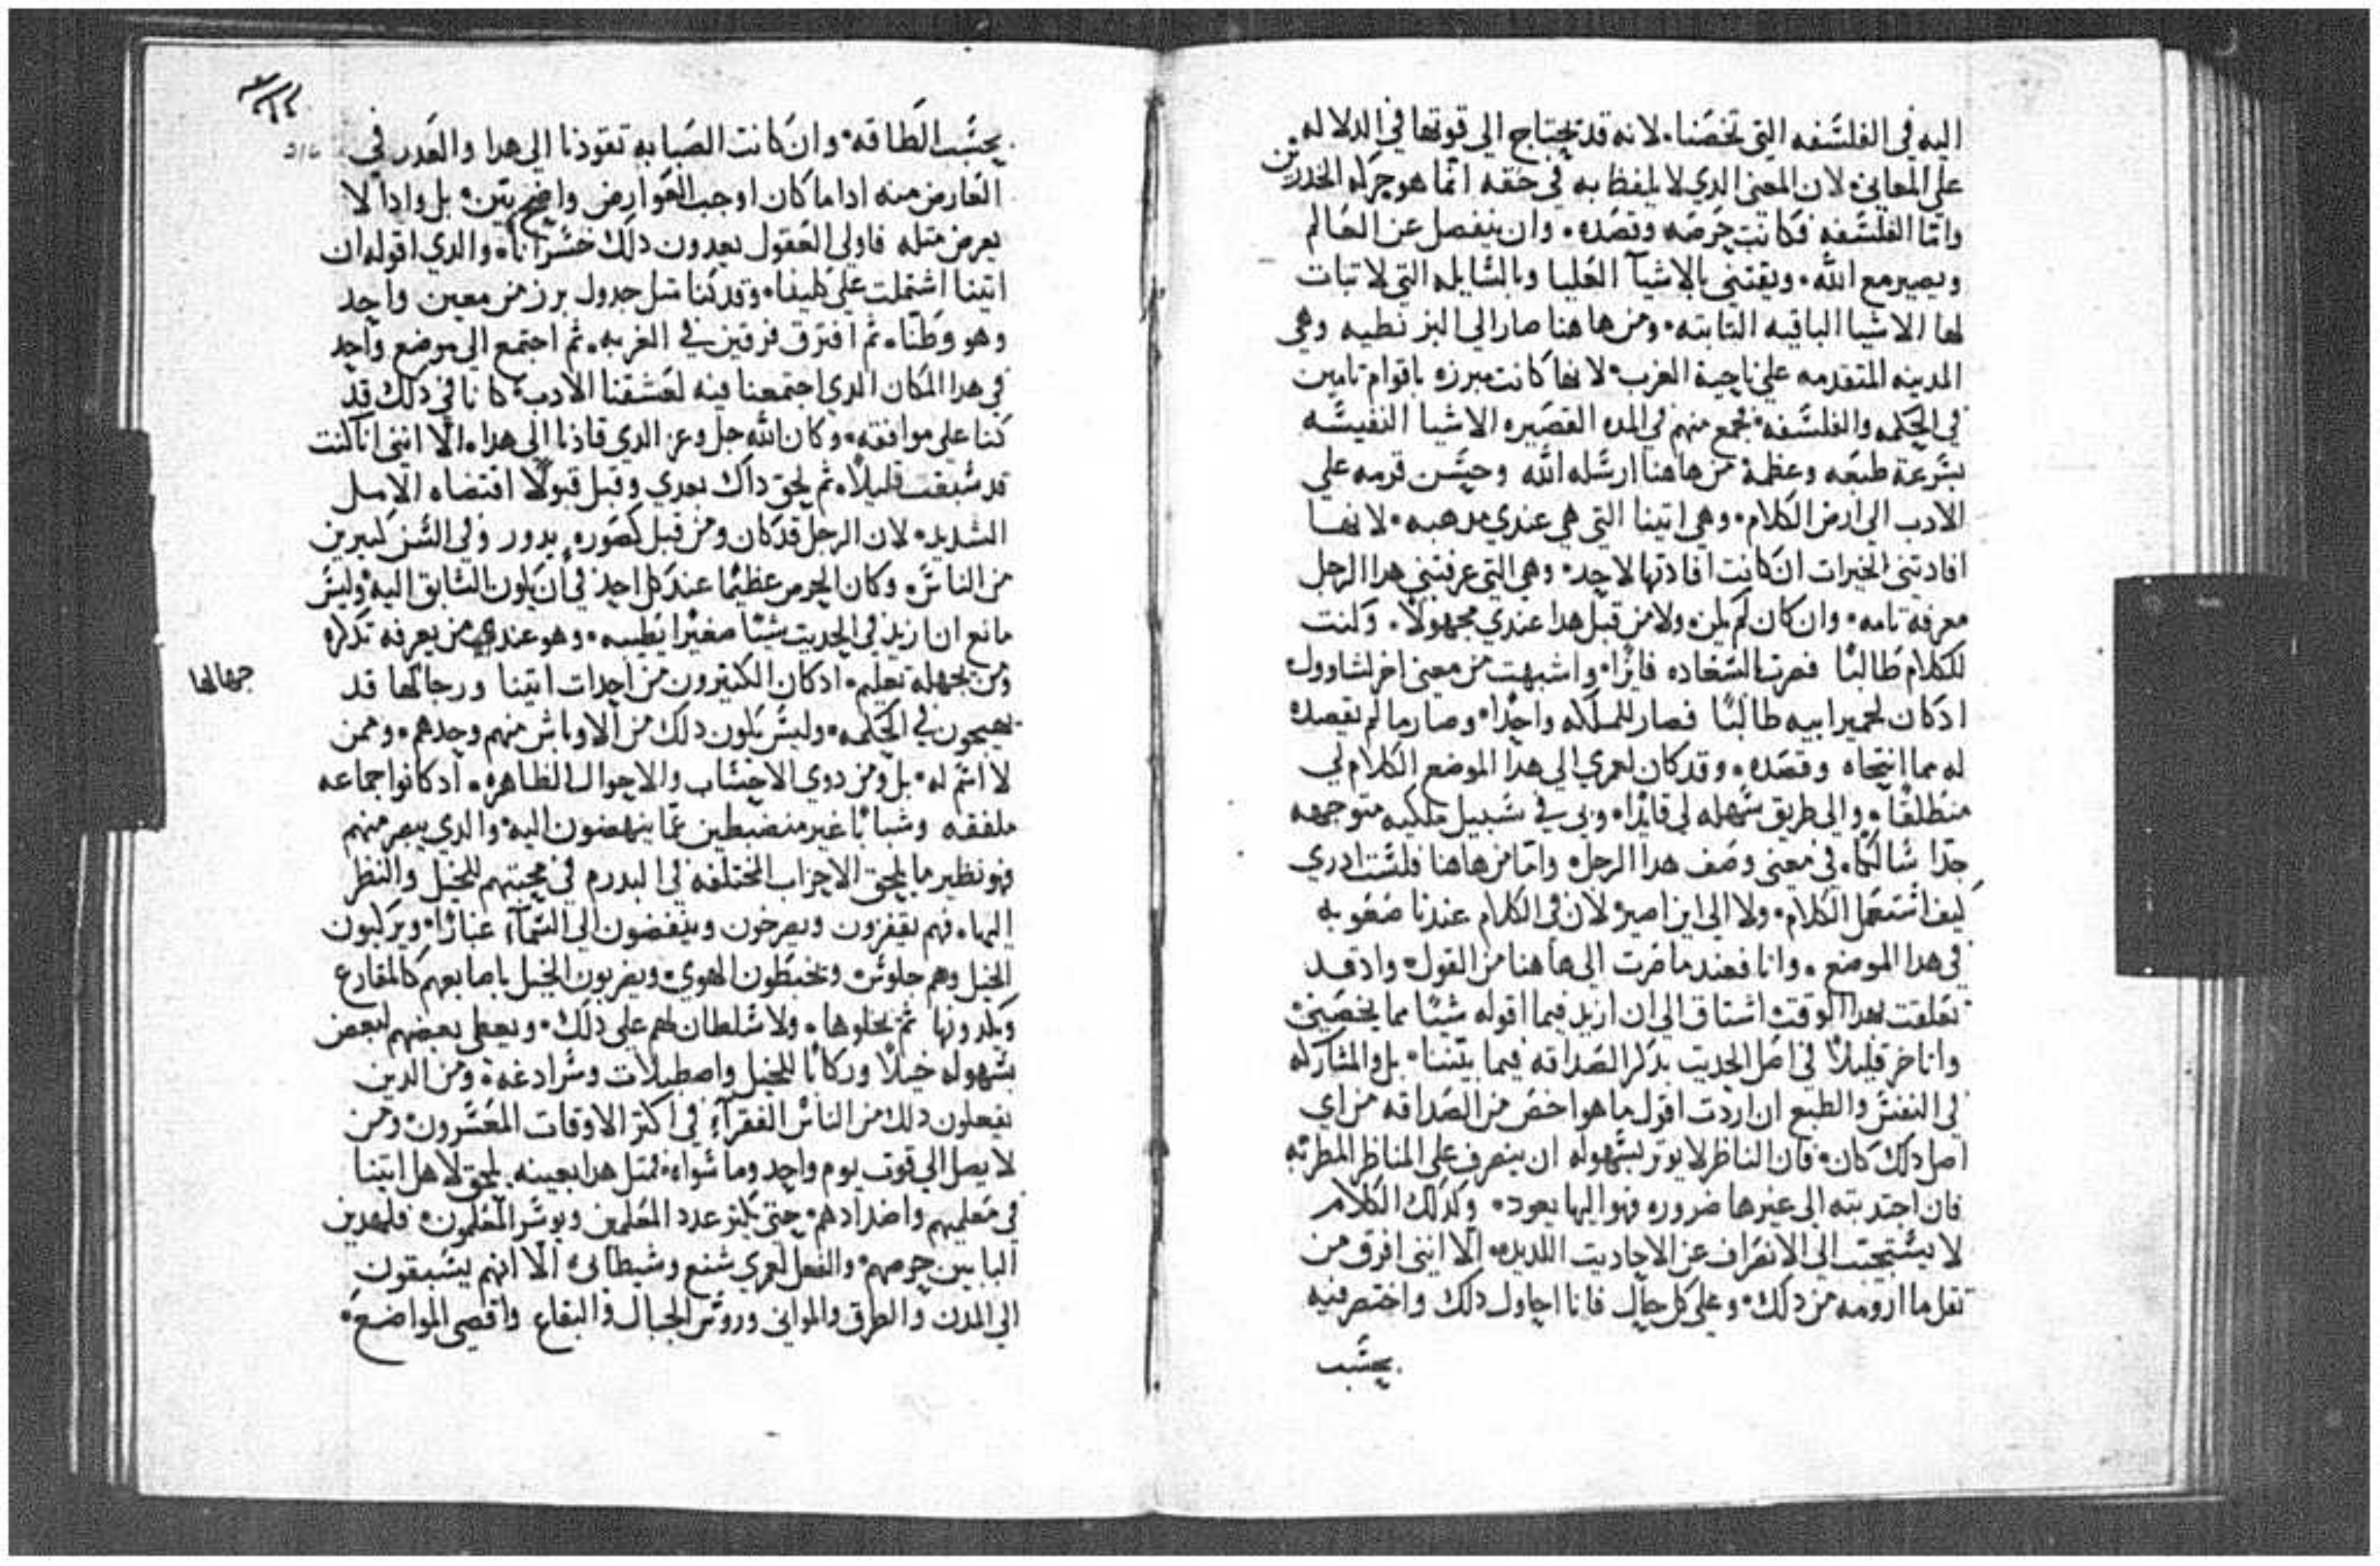 اليه في الفلسفه التي تخصنا. لانه قد يحتاج الي قوتها في الدلاله
علي المعاني. لان المعني الدي لا يلفظ به في حقه انما هو حركه الخدرين
واما الفلسفه فكانت حرصه وقصده. وان ينفصل عن العالم
ويصير مع الله. ويقتني بالاشيآ العليا وبالسايله التي لا تبات
لها الاشيا الباقيه التابته. ومن هاهنا صار الي البزنطيه وهي
المدينه المتقدمه علي ناحية الغرب. لانها كانت مبرزه باقوام تامين
في الحكمه والفلسفه فجمع منهم في المده القصيره الاشيا النفيسه
بسرعة طبعه وعظمة من هاهنا ارسله الله وحسن قرمه علي
الادب الي ارض الكلام. وهي اتينا التي هي عندي مدهبه. لانها
افادتني الخيرات ان كانت افادتها لاحد. وهي التي عرفتني هدا الرجل
معرفة تامه. وان كان لم يكن ولا من قبل هدا عندي مجهولاً. وكنت
للكلام طالبًا فصرت بالسعاده فايزًا. واشبهت من معني اخر لشاوول
ادكان لحمير ابيه طالبًا فصار للمملكه واجدًا. وصار ما لم يقصده
له مما انتحاه وقصده. وقد كان لعمري الي هدا الموضع الكلام لي
منطلقًا. والي طريق سهله لي قايدًا. وبي في سبيل ملكيه متوجهه
جدًا سالكًا. في معني وصف هدا الرجل. واما من هاهنا فلست ادري
كيف استعمل الكلام. ولا الي اين اصير لان في الكلام عندنا صعوبه
في هدا الموضع. وانا فعند ما صرت الي هاهنا من القول. واد قد
تعلقت بهدا الوقت اشتاق الي ان ازيد فيما اقوله شيئًا مما يخصني.
واتاخر قليلاً في اصل الحديت بدكر الصداقه فيما بيننا. بل والمشاركه
في النفس والطبع ان اردت اقول ما هو اخص من الصداقه من اي
اصل دلك كان. فان الناظر لا يوتر بسهوله ان ينصرف علي المناظر المطربه
فان اجتدبته الي غيرها ضروره فهو اليها يعود. وكدلك الكلام
لا يستحتب الي الانصراف عن الاحاديت اللديده. الا انني افرق من
تقل ما ارومه من دلك. وعلي كل حال فانا احاول دلك واختصر فيه
بحسب
بحسب الطاقه. وان كانت الصبابه تقودنا الي هدا والعدر في
العارض منه اداما كان اوجب العوارض واضح بين. بل وادا لا
يعرض متله فاولي العقول يعدون دلك خسرانًا. والدي اقوله ان
اتينا اشتملت علي كلينا. وقد كنا متل جدول برز من معين واحد
وهو وطننا. تم افترق فرقتين في الغربه. تم اجتمع الي موضع واحد
في هدا المكان الدي اجتمعنا فيه لعشقنا الادب. كاننا في دلك قد
كنا علي موافقه. وكان الله جل وعز الدي قادنا الي هدا. الا انني انا كنت
قد سبقت قليلاً. تم لحق داك بعدي وقبل قبولاً اقتضاه الامل
الشديد. لان الرجل قد كان ومن قبل حضوره يدور في السن كبيرين
من الناس. وكان الحرص عظيمًا عند كل احد في ان يكون السابق اليه. وليس
مانع ان ازيد في الحديت شيئًا صغيرًا يطيبه. وهو عندي من يعرفه تدكره
ومن يجهله تعليم. ادكان الكتيرون من احدات اتينا ورجالها قد
جهالها
يهيجون في الحكمه. وليس يكون دلك من الاوباش منهم وحدهم. وممن
لا اسم له. بل ومن دوي الاحساب والاحوال الظاهره. ادكانوا جماعه
ملفقه وشبابًا غير منضبطين عما ينهضون اليه. والدي يبصر منهم
فهو نظير ما يلحق الاحزاب المختلفه في البدرم في محبتهم للخيل والنظر
اليها. فهم يقفزون ويصرخون وينفضون الي السمآء غبارًا. ويركبون
الخيل وهم جلوس. ويخبطون الهوي. ويضربون الخيل باصابعهم كالمقارع
ويكدونها تم يخلوها. ولا سلطان لهم علي دلك. ويعطي بعضهم لبعض
بسهوله خيلاً وركابًا للخيل واصطبلات وسرادغه. ومن الدين
يفعلون دلك من الناس الفقرآء في اكتر الاوقات المعسرون. ومن
لا يصل الي قوت يوم واحد وما سواه. فمتل هدا بعينه. يلحق لاهل اتينا
في معلميهم واضدادهم. حتي يكتر عدد المعلمين ويوسر المعلمون. فلهدين
البابين حرصهم. والفعل لعمري شنع وشيطاني. الا انهم يسبقون
الي المدن والطرق والمواني وروس الجبال والبقاع واقصي المواضع.